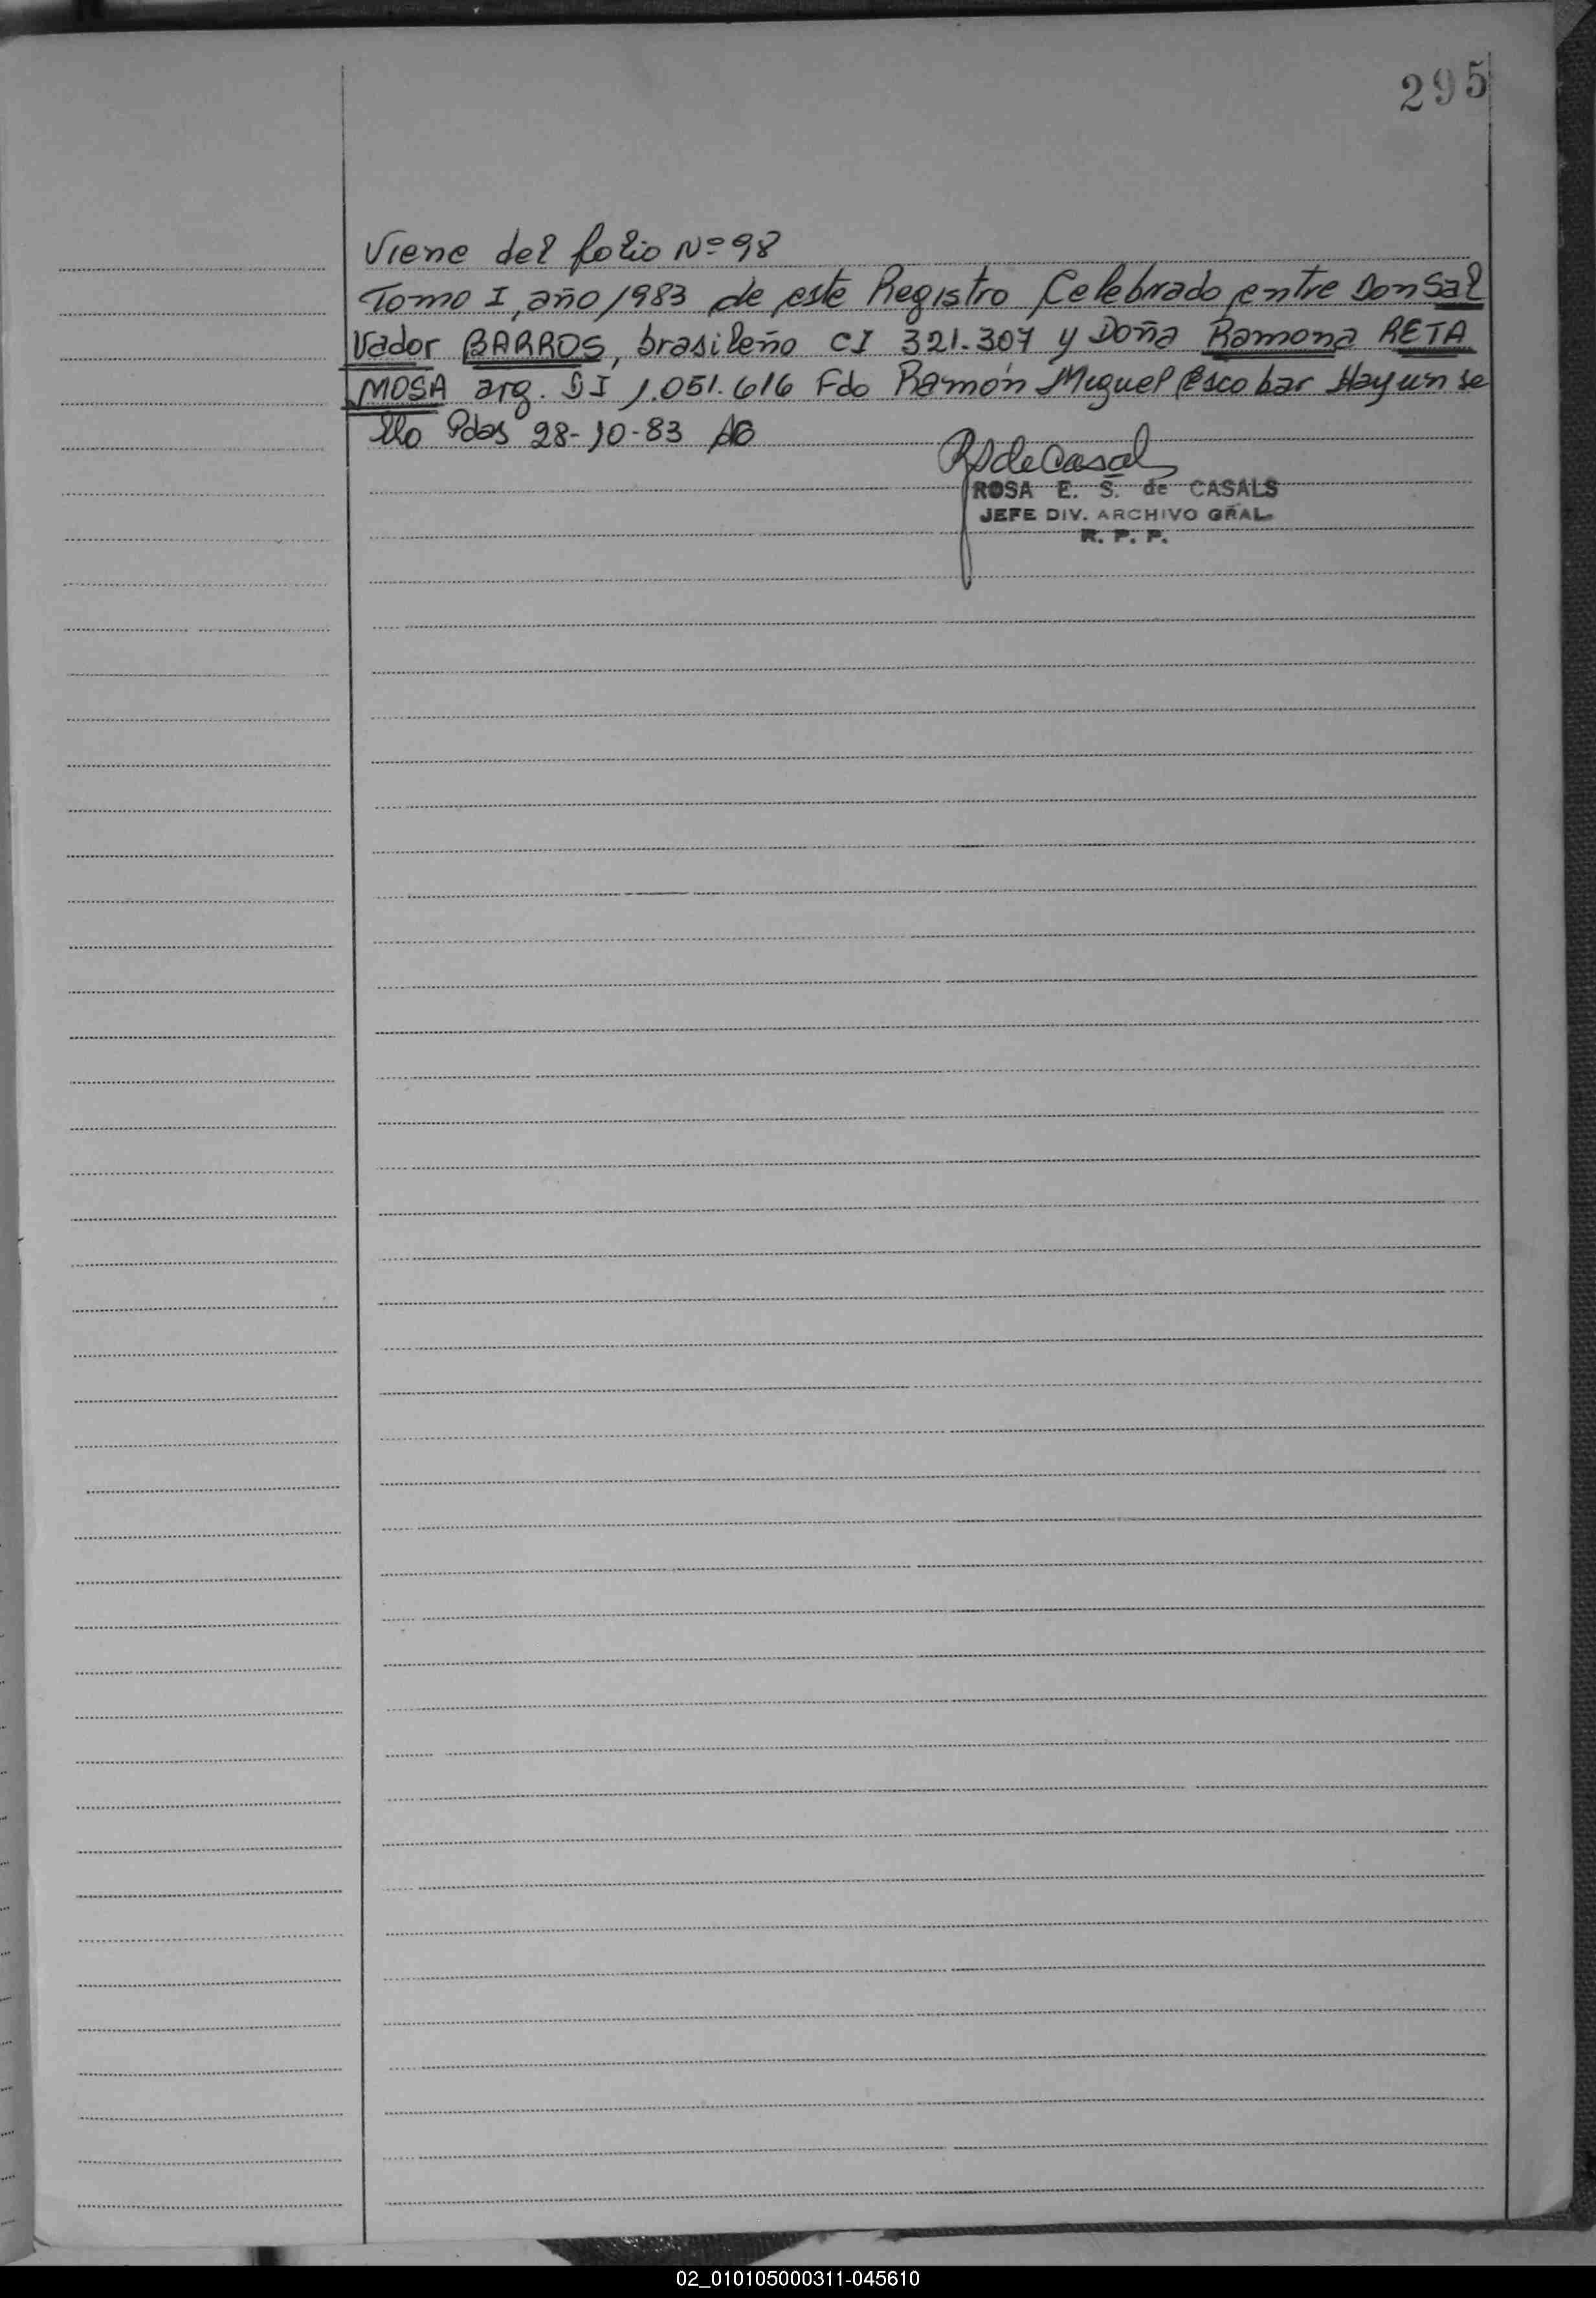 295
Viene del folio Nº 98
Tomo I, año 1983 de este Registro Celebrado entre Don Sal
vador BARROS, brasileño CI 321.307 y Doña Ramona RETA
MOSA arg. DI 1.051.616 Fdo Ramón Miguel Escobar Hay un se
llo Pdas 28-10-83 AB
RSdeCasals
ROSA E. S. de CASALS
JEFE DIV. ARCHIVO GRAL.
R. P. P.
02_010105000311-045610